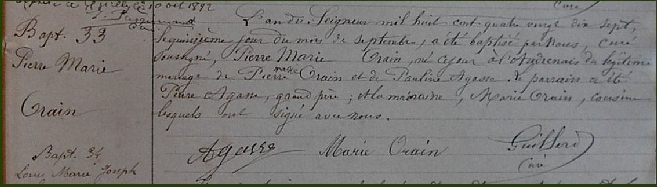 à Gpilly le 10 avril 1892
Curé
Bapt. 33
Pierre Marie
Crain
L'an du Seigneur mil huit cent quatre vingt dix sept,
le quinzième jour du mois de septembre, a été baptisé par Nous, curé
soussigné, Pierre Marie Crain, né ce jour à l'Audrenais du légitime
mariage de Pierre Marie Crain et de Pauline Agasse. Le parrain a été
Pierre Agasse, grand père; et la marraine, Marie Crain, cousine
lesquels ont signé avec nous.
Agasse Marie Crain Guillard
curé
Bapt. 34
Louis Marie Joseph